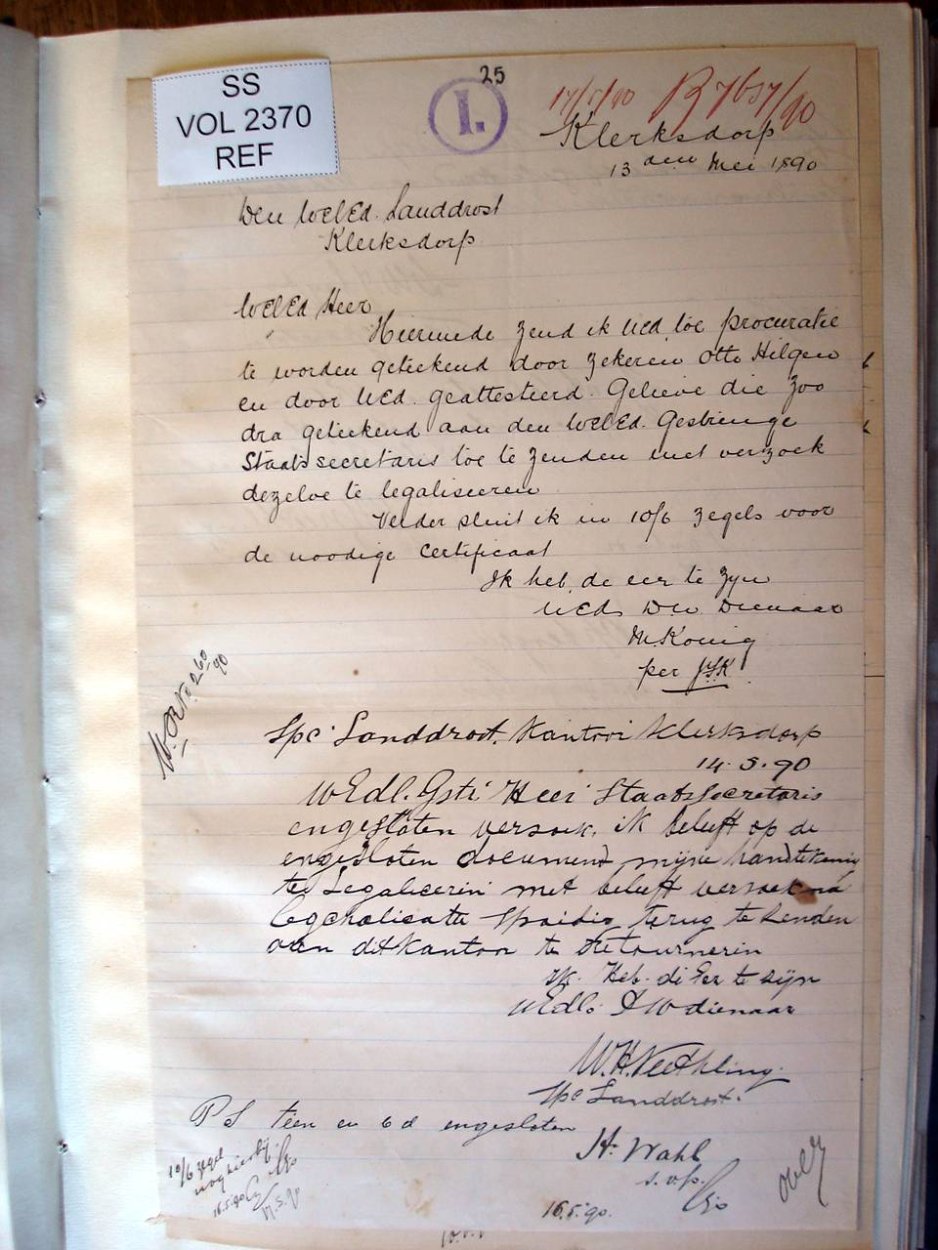 SS
VOL 2370
REF
25
1.
17/5/90 R 7657/90
Klerksdorp
13 den Mei 1890
Den WelEd. Landdrost
Klerksdorp
WelEd Heer
Hiermede zend ik UEd toe procuratie
te worden geteekend door zekeren Otto Hilgen
en door UEd. geattesteerd. Gelieve die zoo
dra geteekend aan den WelEd. Gestrenge
Staatssecretaris toe te zenden met verzoek
dezelve te legaliseeren
Verder sluit ik in 10/6 zegels voor
de noodige certificaat
Ik heb de eer te zyn
UEds Dw Dienaar
M. König
per JSK
Spc Landdrost. Kantoor Klerksdorp
14.5.90
WEdl. Gstr Heer Staatssecretaris
engesloten versoek. ik beleeft op de
engesloten document mijne handtekening
te Legaliceerin met beleeft versoek na
spoidig terug te senden
aan dit kantoor te retournerin
Ik. Heb. di Eer te sijn
WEdls DW dienaar
Spc Landdrost.
PS teen en 6d engesloten
H. Wahl
s.v.p.
10/6 zegel
nog hierbij
16.5.90
16.5.90.